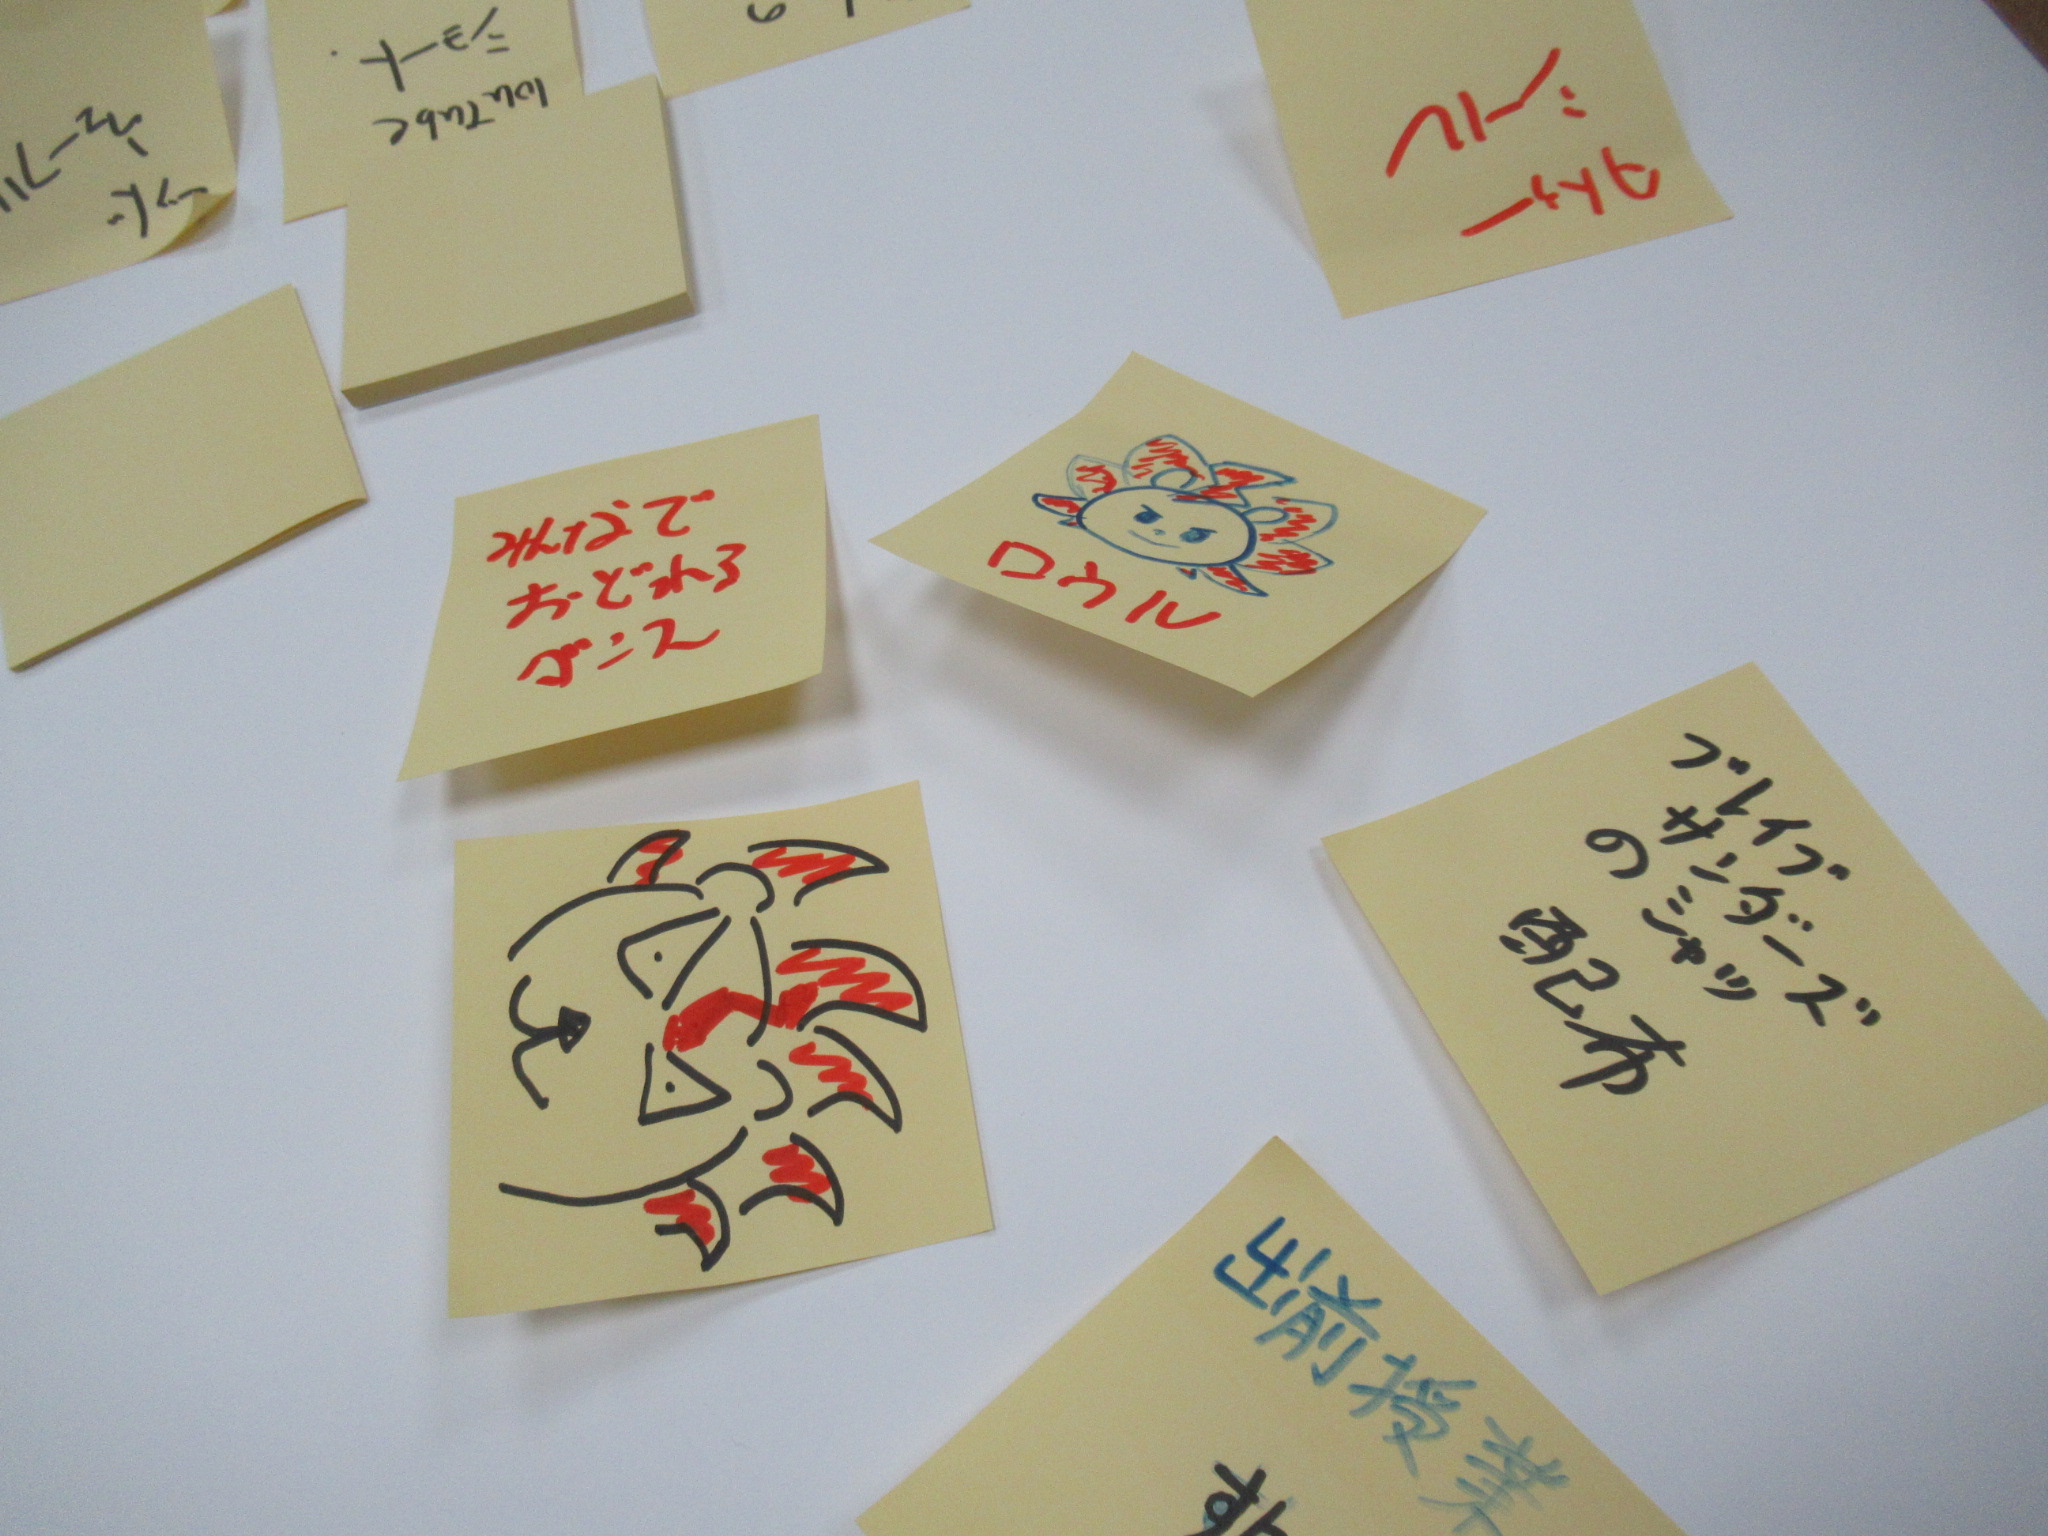 YouTube
ショート
タトゥー
シール
みんなで
おどれる
ダンス
ロウル
ブレイブ
サンダーズ
のシャツ
配布
出前授業